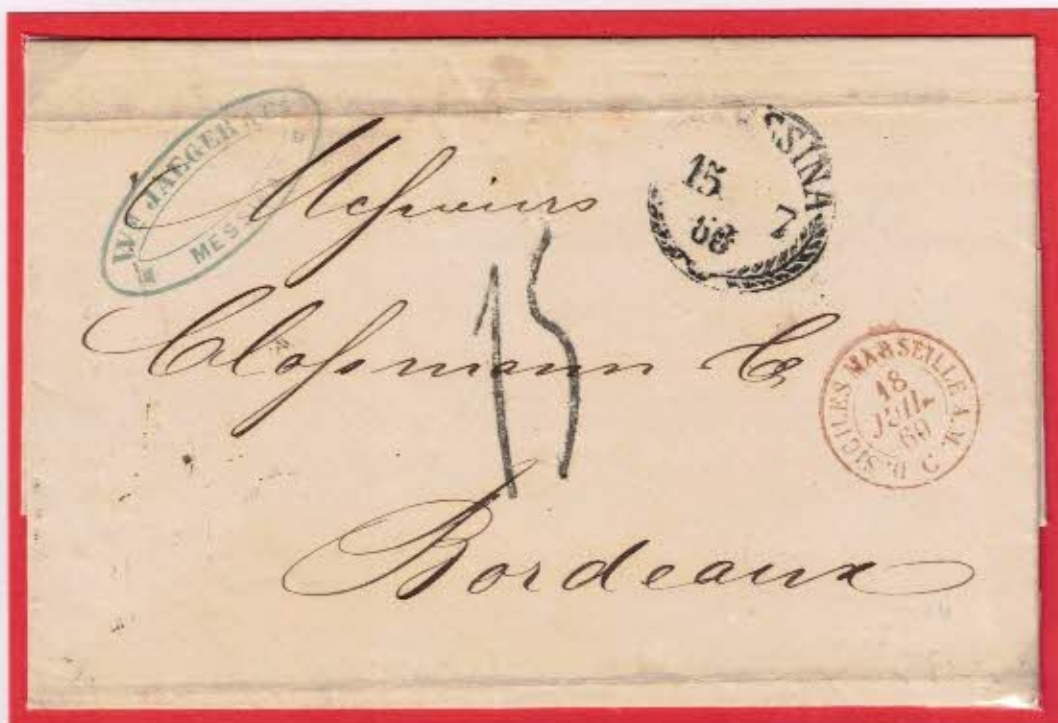 Wm JAEGER & Co
MESS
SSINA
15
7
Messieurs
15
Clossmann C
2. SICILES MARSEILLE A. M. C.
18
JUIL.
60
Bordeaux